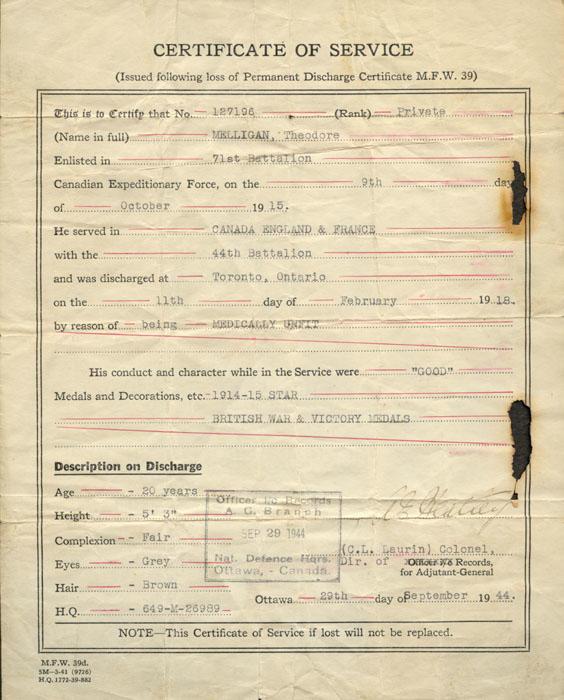 CERTIFICATE OF SERVICE
(Issued following loss of Permanent Discharge Certificate M.F.W. 39)
This is to Certify that No. 127196 (Rank) Private
(Name in full) MELLIGAN, Theodore
Enlisted in 71st Battalion
Canadian Expeditionary Force, on the 9th day
of October 1915.
He served in CANADA ENGLAND & FRANCE
with the 44th Battalion
and was discharged at Toronto, Ontario
on the 11th day of February 1918.
by reason of being MEDICALLY UNFIT
His conduct and character while in the Service were "GOOD"
Medals and Decorations, etc. 1914-15 STAR
BRITISH WAR & VICTORY MEDALS
Description on Discharge
Age - 20 years
Height - 5' 3"
Complexion - Fair
Eyes - Grey
Hair - Brown
H.Q. - 649-M-26989
Officer i/c Records
A. G. Branch
SEP 29 1944
Nat. Defence Hqrs.
Ottawa, - Canada
(C.L. Laurin) Colonel,
Dir. of Records,
for Adjutant-General
Ottawa 29th day of September 1944.
NOTE—This Certificate of Service if lost will not be replaced.
M.F.W. 39d.
5M—3-41 (9726)
H.Q. 1772-39-882